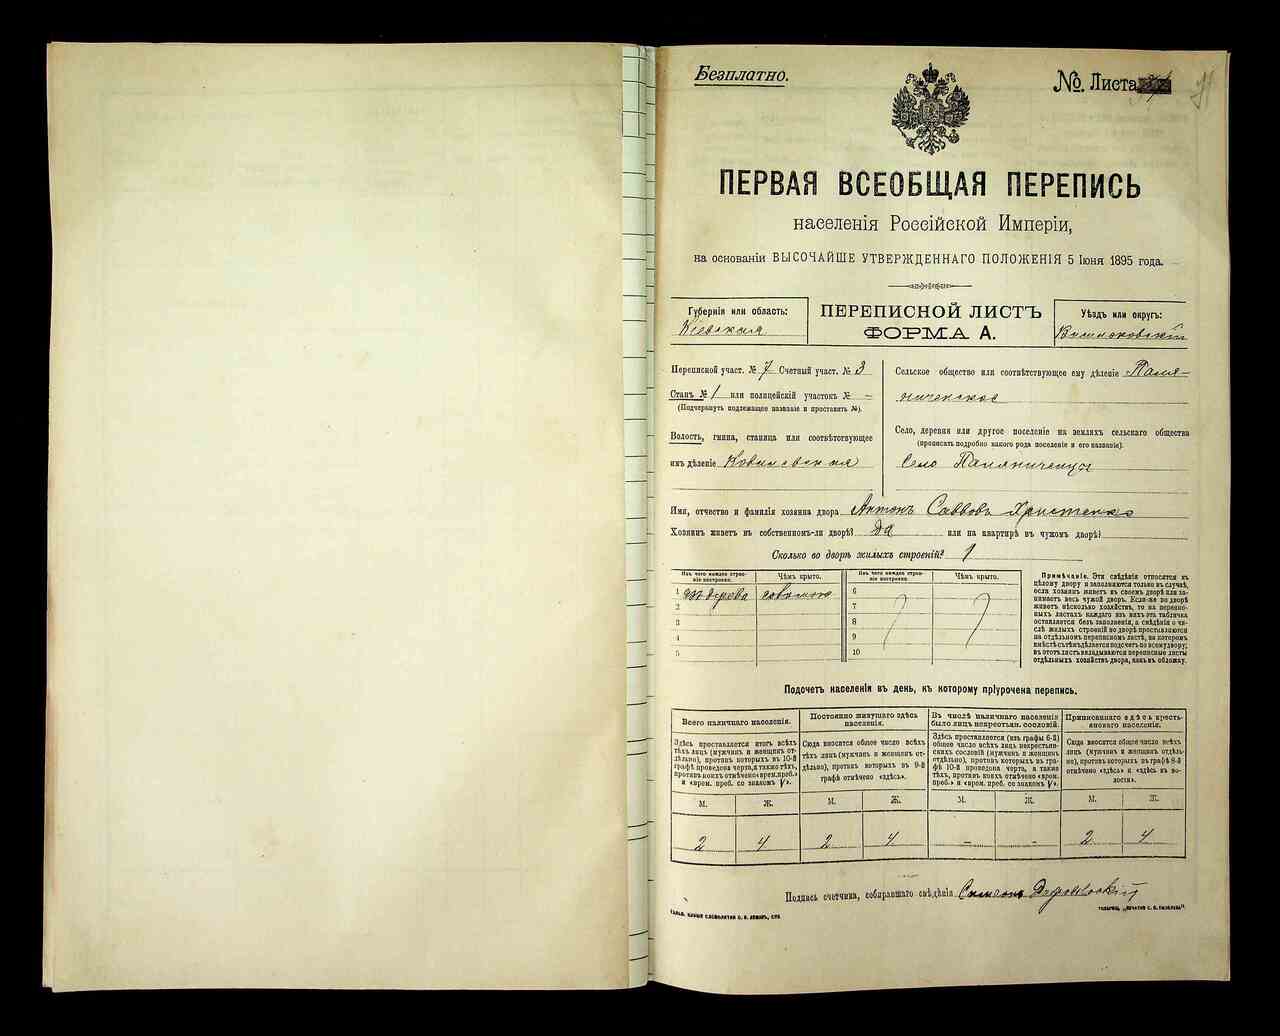 Безплатно.
№. Листа
ПЕРВАЯ ВСЕОБЩАЯ ПЕРЕПИСЬ
населенія Россійской Имперіи,
на основаніи ВЫСОЧАЙШЕ УТВЕРЖДЕННАГО ПОЛОЖЕНІЯ 5 Іюня 1895 года.
Губернія или область:
Кіевская
ПЕРЕПИСНОЙ ЛИСТЪ
ФОРМА А.
Уѣздъ или округъ:
Васильковскій
Переписной участ. № 7 Счетный участ. № 3
Станъ № 1 или полицейскій участокъ № —
(Подчеркнуть подлежащее названіе и проставить №).
Волость, гмина, станица или соотвѣтствующее
имъ дѣленіе Ковалевская
Сельское общество или соотвѣтствующее ему дѣленіе Паля-
ниченское
Село, деревня или другое поселеніе на земляхъ сельскаго общества
(прописать подробно какого рода поселеніе и его названіе).
Село Паляниченцы
Имя, отчество и фамилія хозяина двора Антонъ Саввовъ Христенко
Хозяинъ живетъ въ собственномъ-ли дворѣ? да или на квартирѣ въ чужомъ дворѣ?
Сколько во дворѣ жилыхъ строеній? 1
Изъ чего каждое строе-
ніе построено.
Чѣмъ крыто.
Изъ чего каждое строе-
ніе построено.
Чѣмъ крыто.
1 изъ дерева соломою
2
3
4
5
6
7
8
9
10
Примѣчаніе. Эти свѣдѣнія относятся къ
цѣлому двору и заполняются только въ случаѣ,
если хозяинъ живетъ въ своемъ дворѣ или за-
нимаетъ весь чужой дворъ. Если-же во дворѣ
живетъ нѣсколько хозяйствъ, то на перепис-
ныхъ листахъ каждаго изъ нихъ эта табличка
оставляется безъ заполненія, а свѣдѣнія о чи-
слѣ жилыхъ строеній во дворѣ проставляются
на отдѣльномъ переписномъ листѣ, на которомъ
вмѣстѣ съ тѣмъ дѣлается подсчетъ по всему двору;
въ этотъ листъ вкладываются переписные листы
отдѣльныхъ хозяйствъ двора, какъ въ обложку.
Подсчетъ населенія въ день, къ которому пріурочена перепись.
Всего наличнаго населенія.
Здѣсь проставляется итогъ всѣхъ
тѣхъ лицъ (мужчинъ и женщинъ от-
дѣльно), противъ которыхъ въ 10-й
графѣ проведена черта, а также тѣхъ,
противъ коихъ отмѣчено «врем. преб.»
и «врем. преб. со знакомъ V».
Постоянно живущаго здѣсь
населенія.
Сюда вносится общее число всѣхъ
тѣхъ лицъ (мужчинъ и женщинъ от-
дѣльно), противъ которыхъ въ 9-й
графѣ отмѣчено «здѣсь».
Въ числѣ наличнаго населенія
было лицъ некрестьян. сословій.
Здѣсь проставляется (изъ графы 6-й)
общее число всѣхъ лицъ некрестьян-
скихъ сословій (мужчинъ и женщинъ
отдѣльно), противъ которыхъ въ гра-
фѣ 10-й проведена черта, а также
тѣхъ, противъ коихъ отмѣчено «врем.
преб.» и «врем. преб. со знакомъ V».
Приписаннаго здѣсь кресть-
янскаго населенія.
Сюда вносится общее число всѣхъ
лицъ (мужчинъ и женщинъ отдѣль-
но), противъ которыхъ въ графѣ 8-й
отмѣчено «здѣсь» и «здѣсь въ во-
лости».
М. Ж. М. Ж. М. Ж. М. Ж.
2 4 2 4 — — 2 4
Подпись счетчика, собиравшаго свѣдѣнія